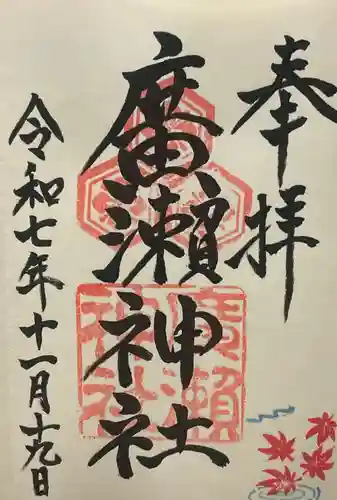 奉拝
廣瀬神社
令和七年十一月十九日
廣瀬神社